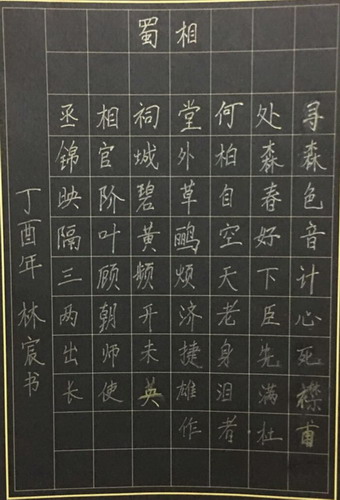 蜀相
丞相祠堂何处寻
锦官城外柏森森
映阶碧草自春色
隔叶黄鹂空好音
三顾频烦天下计
两朝开济老臣心
出师未捷身先死
长使英雄泪满襟
作者:杜甫
丁酉年 林宸书